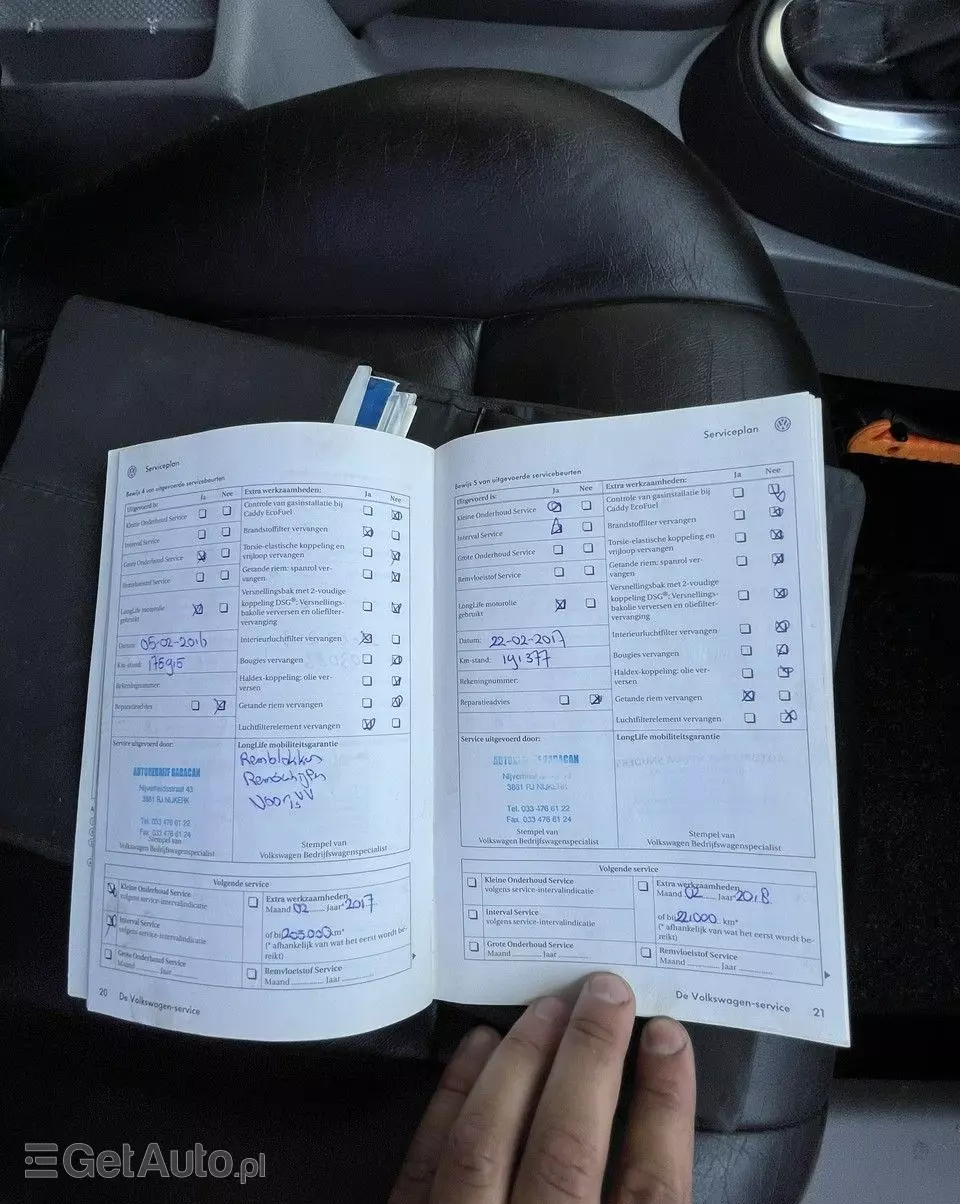 Serviceplan
Bewijs 4 van uitgevoerde servicebeurten
Uitgevoerd is: Ja Nee
Kleine Onderhoud Service
Interval Service
Grote Onderhoud Service
Remvloeistof Service
LongLife motorolie
gebruikt
Datum: 05-02-2016
Km-stand: 175915
Rekeningnummer:
Reparatieadvies
Extra werkzaamheden: Ja Nee
Controle van gasinstallatie bij
Caddy EcoFuel
Brandstoffilter vervangen
Torsie-elastische koppeling en
vrijloop vervangen
Getande riem: spanrol ver-
vangen
Versnellingsbak met 2-voudige
koppeling DSG®: Versnellings-
bakolie verversen en oliefilter-
vervanging
Interieurluchtfilter vervangen
Bougies vervangen
Haldex-koppeling: olie ver-
versen
Getande riem vervangen
Luchtfilterelement vervangen
Service uitgevoerd door:
AUTOBEDRIJF BARACAN
Nijverheidsstraat 43
3861 RJ NIJKERK
Tel. 033 476 61 22
Fax. 033 476 61 24
Stempel van
Volkswagen Bedrijfswagenspecialist
LongLife mobiliteitsgarantie
Remblokken
Remschijven
Stempel van
Volkswagen Bedrijfswagenspecialist
Volgende service
Kleine Onderhoud Service
volgens service-intervalindicatie
Interval Service
volgens service-intervalindicatie
Grote Onderhoud Service
Maand Jaar
Extra werkzaamheden
Maand 02 Jaar* 2017
of bij 205000 km*
(* afhankelijk van wat het eerst wordt be-
reikt)
Remvloeistof Service
Maand Jaar
20 De Volkswagen-service
Serviceplan
Bewijs 5 van uitgevoerde servicebeurten
Uitgevoerd is: Ja Nee
Kleine Onderhoud Service
Interval Service
Grote Onderhoud Service
Remvloeistof Service
LongLife motorolie
gebruikt
Datum: 22-02-2017
Km-stand: 191377
Rekeningnummer:
Reparatieadvies
Extra werkzaamheden: Ja Nee
Controle van gasinstallatie bij
Caddy EcoFuel
Brandstoffilter vervangen
Torsie-elastische koppeling en
vrijloop vervangen
Getande riem: spanrol ver-
vangen
Versnellingsbak met 2-voudige
koppeling DSG®: Versnellings-
bakolie verversen en oliefilter-
vervanging
Interieurluchtfilter vervangen
Bougies vervangen
Haldex-koppeling: olie ver-
versen
Getande riem vervangen
Luchtfilterelement vervangen
Service uitgevoerd door:
BARACAN
3861 RJ NIJKERK
Tel. 033 476 61 22
Fax. 033 476 61 24
Stempel van
Volkswagen Bedrijfswagenspecialist
LongLife mobiliteitsgarantie
Stempel van
Volkswagen Bedrijfswagenspecialist
Volgende service
Kleine Onderhoud Service
volgens service-intervalindicatie
Interval Service
volgens service-intervalindicatie
Grote Onderhoud Service
Maand Jaar
Extra werkzaamheden
Maand 02 Jaar 2018
of bij 221000 km*
(* afhankelijk van wat het eerst wordt be-
reikt)
Remvloeistof Service
Maand Jaar
De Volkswagen-service 21
GetAuto.pl